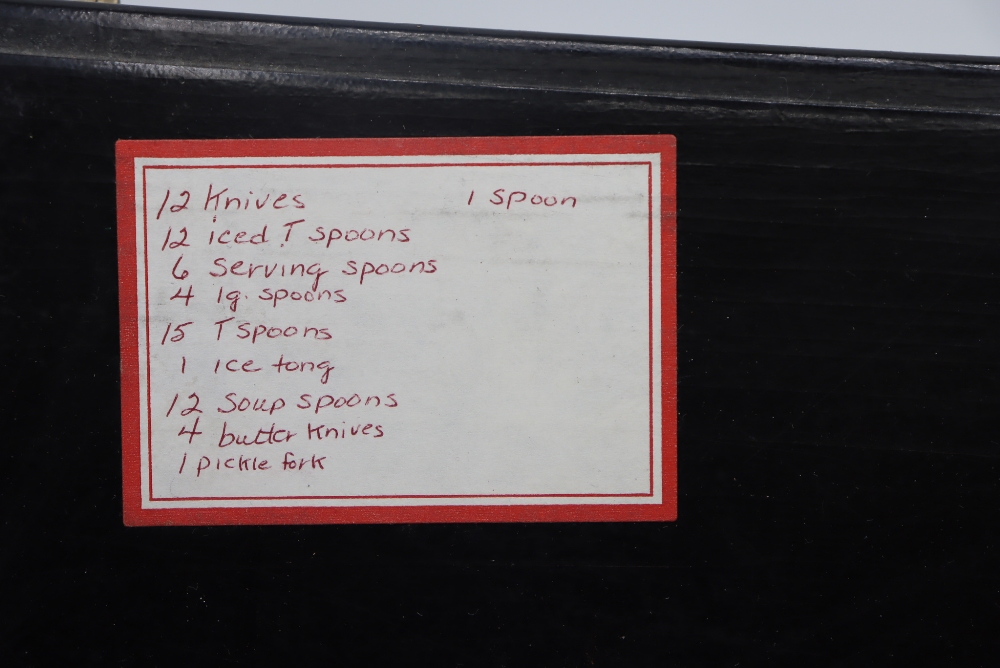 12 Knives
1 spoon
12 iced T spoons
6 Serving spoons
4 lg. spoons
15 T spoons
1 ice tong
12 Soup spoons
4 butter Knives
1 pickle fork